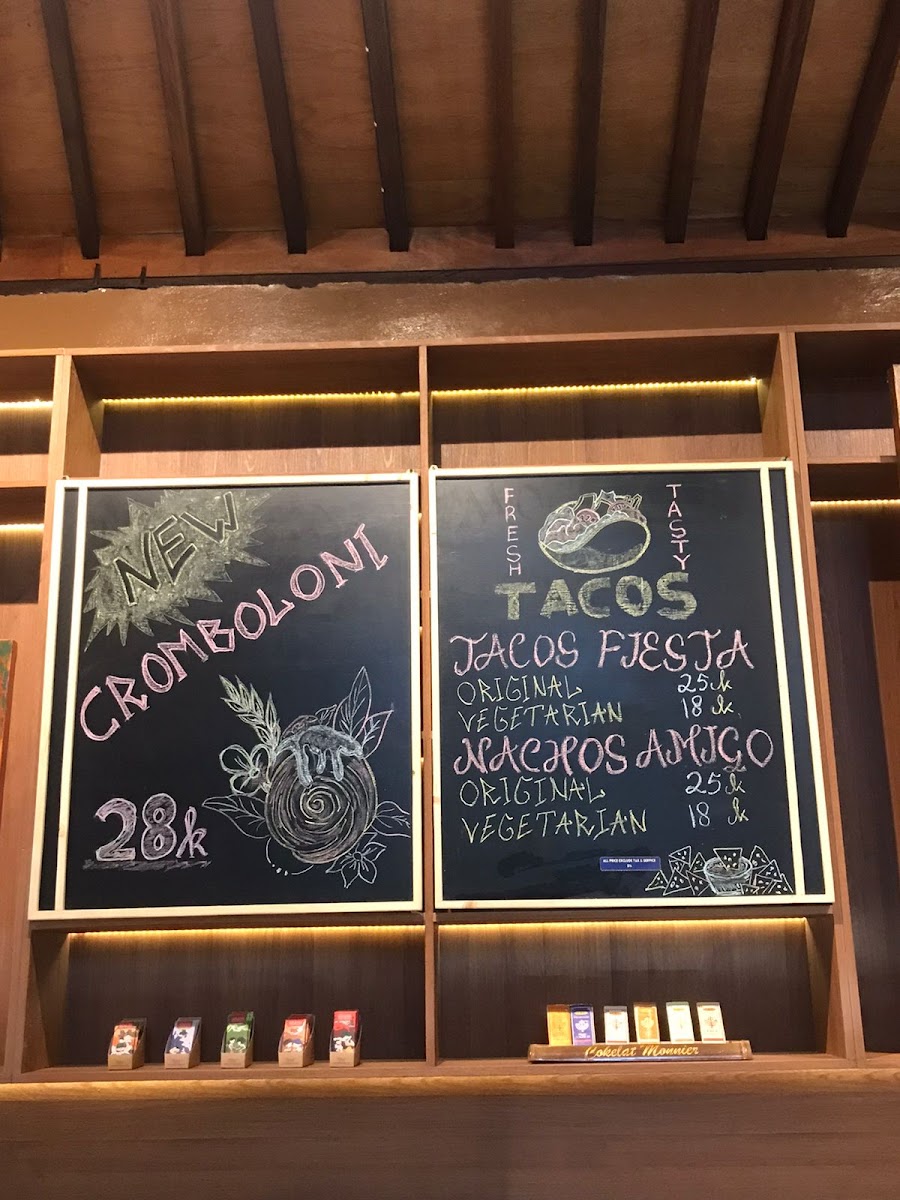 NEW
CROMBOLONI
28k
FRESH
TASTY
TACOS
TACOS FIESTA
ORIGINAL 25k
VEGETARIAN 18k
NACHOS AMIGO
ORIGINAL 25k
VEGETARIAN 18k
ALL PRICE EXCLUDE TAX & SERVICE
Cokelat Monnier